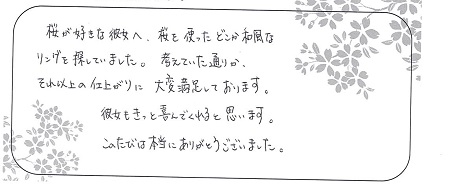 桜が好きな彼女へ、桜を使ったどこか和風な
リングを探していました。考えていた通りか、
それ以上の仕上がりに大変満足しております。
彼女もきっと喜んでくれると思います。
このたびは本当にありがとうございました。